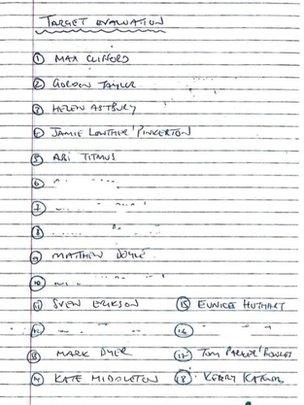 TARGET EVALUATION
① MAX CLIFFORD
② GORDON TAYLOR
③ HELEN ASTBURY
④ JAMIE LOWTHER PINKERTON
⑤ ABI TITMUS
⑥
⑦
⑧
⑨ MATTHEW DOYLE
⑩
⑪ SVEN ERIKSON ⑮ EUNICE HUTHART
⑫ ⑯
⑬ MARK DYER ⑰ TOM PARKER BOWLES
⑭ KATE MIDDLETON ⑱ KERRY KATONA